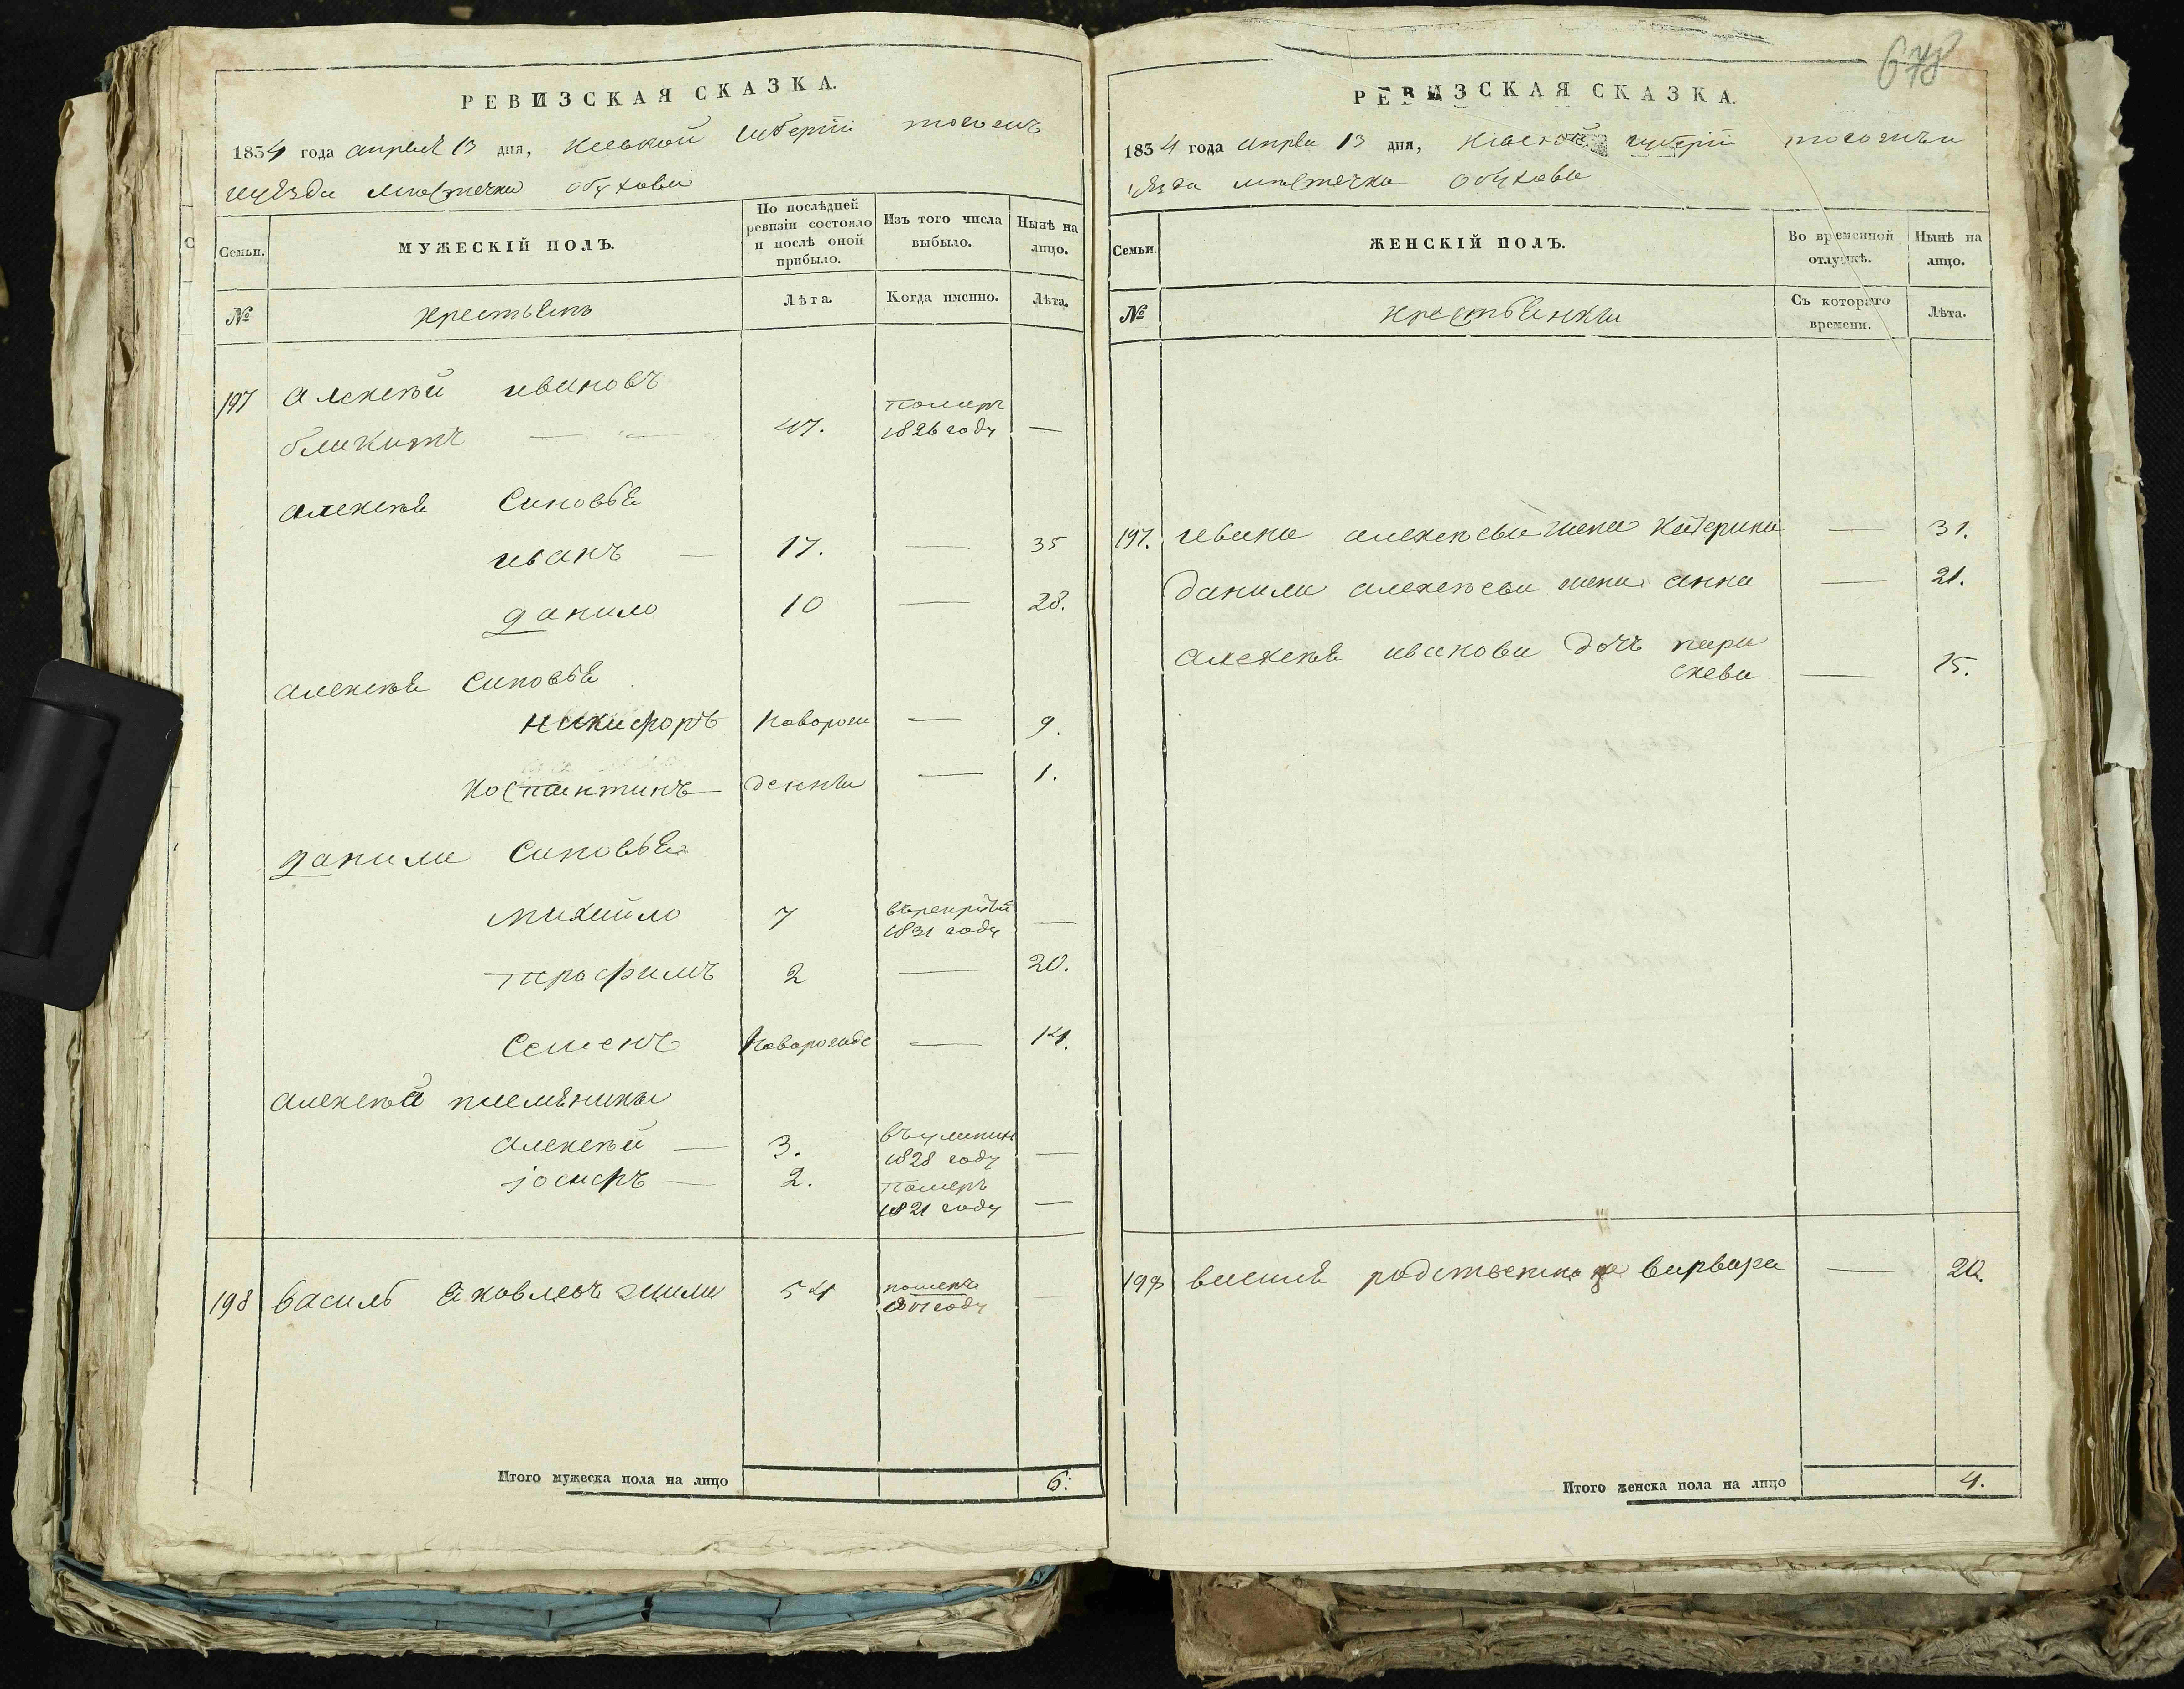 РЕВИЗСКАЯ СКАЗКА.
1834 года апреля 13 дня, Киевкой губернiи тогожъ
уезда местечка Обухова
Семьи.
МУЖЕСКІЙ ПОЛЪ.
По послѣдней ревизіи состояло и послѣ оной прибыло.
Изъ того числа выбыло.
Нынѣ на лицо.
№
Лѣта.
Когда именно.
Лѣта.
197 Алексей Ивановъ
47. Померъ 1826 году —
Алексея Синовья
Иванъ — 17. — 35
Данило 10 — 28.
Алексея Синовья
Никифоръ Новорож — 9.
Костантинъ денни — 1.
Данила Синовья
Михайло 7 1831 году —
Трофимъ 2 — 20.
Семенъ Новорожде — 14.
Алексея племянники
Алексей — 3. 1828 году —
Iосифъ — 2. Померъ 1821 году —
198 Василь Яковлевъ 54 померъ —
Итого мужеска пола на лицо 6.
678
РЕВИЗСКАЯ СКАЗКА.
1834 года апреля 13 дня, Киевской губернiи тогожъ
уезда местечка Обухова
Семьи.
ЖЕНСКІЙ ПОЛЪ.
Во временной отлучкѣ.
Нынѣ на лицо.
№
крестьянки
Съ котораго времени.
Лѣта.
197. Ивана Алексеева жена Катерина — 31.
Данила Алексеева жена Анна — 21.
Алексея Иванова дочь Пара
скева — 15.
198 родственица Варвара — 20.
Итого женска пола на лицо 4.